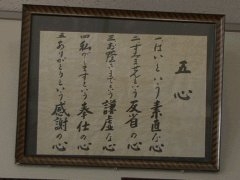 五心
一はいという素直な心
二すみませんという反省の心
三お陰さまでという謙虚な心
四私がしますという奉仕の心
五ありがとうという感謝の心